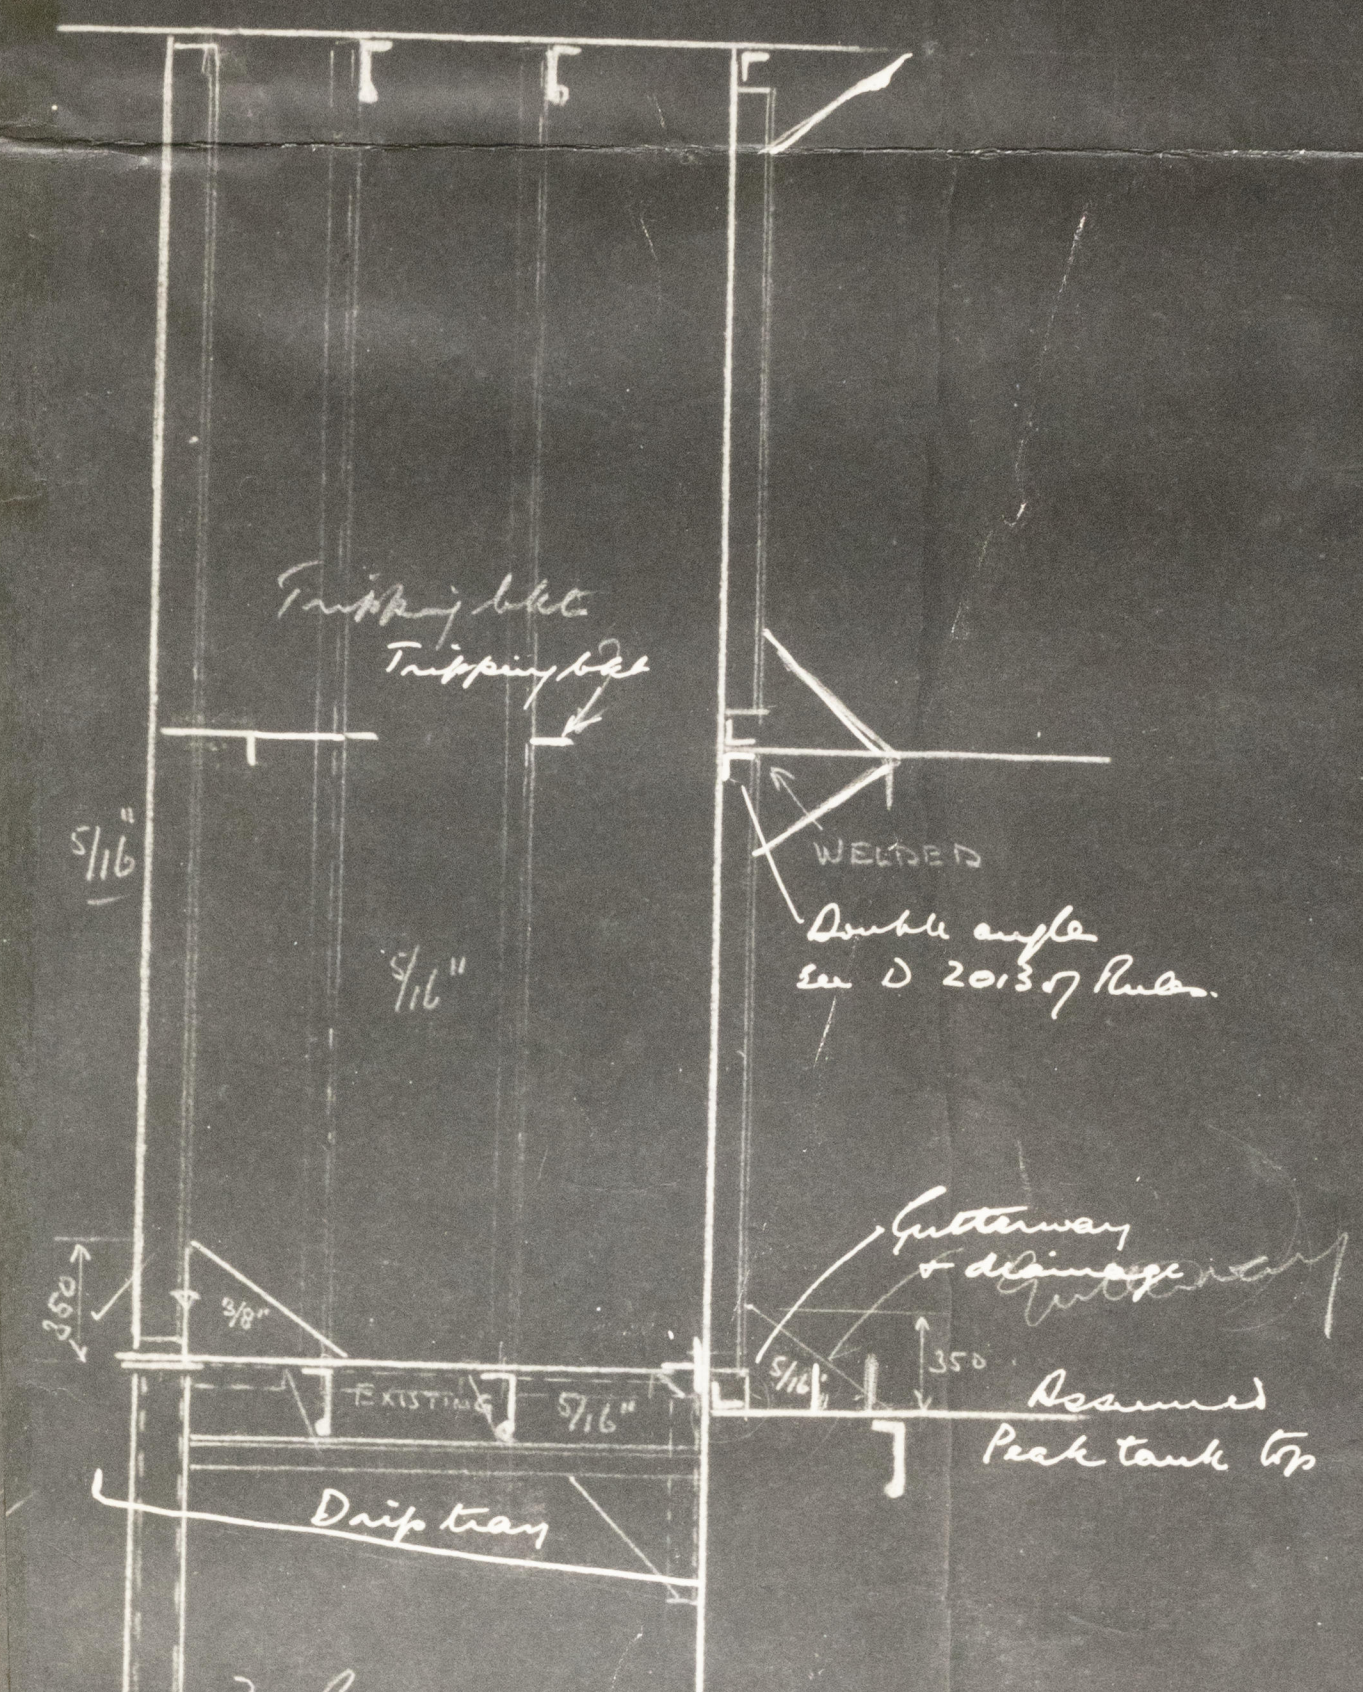 Tripping bkt
Tripping bkt
5/16"
WELDED
Double angle
see D 2013 of Rules.
5/16"
Gutterway
+ drainage
Gutterway
350
3/8"
350
5/16"
EXISTING
5/16"
Assumed
Peak tank top
Drip tray